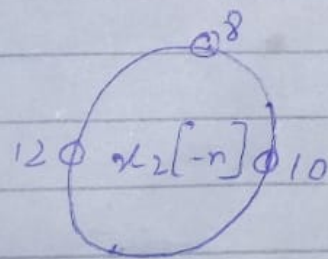 8
12 x₂[-n] 10